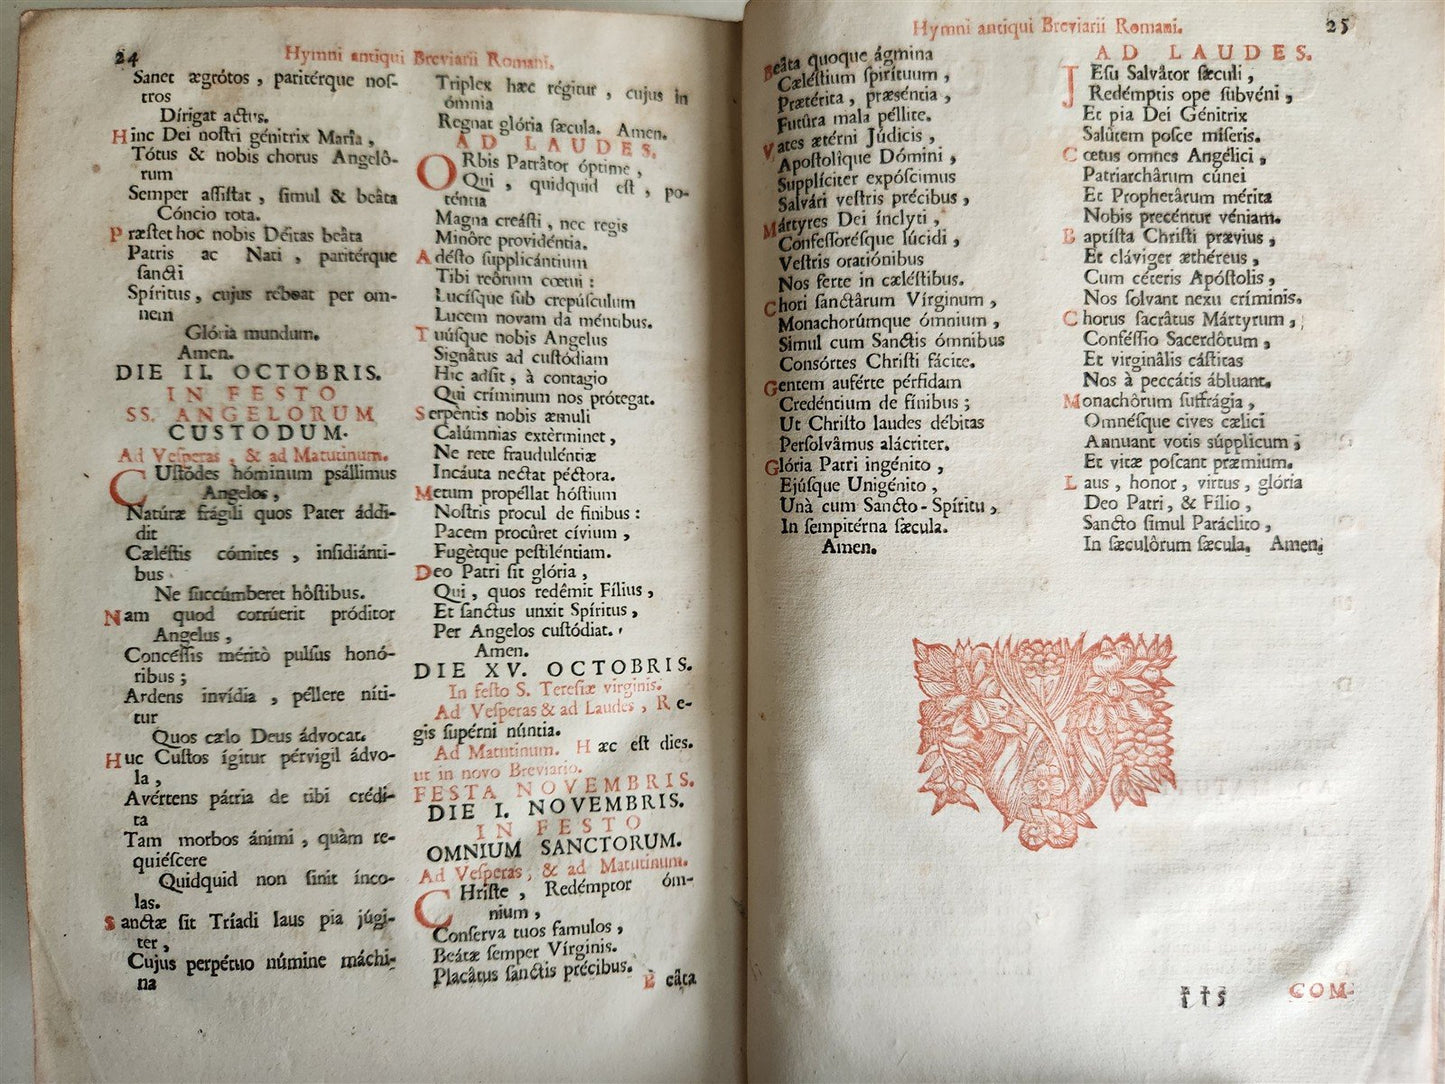 24
Hymni antiqui Breviarii Romani.
Sanet ægrótos, paritérque nos-
tros
Dírigat actus.
Hinc Dei nostri génitrix María,
Tótus & nobis chorus Angelô-
rum
Semper assistat, simul & beâta
Cóncio tota.
Præstet hoc nobis Déitas beâta
Patris ac Nati, paritérque
sancti
Spíritus, cujus reboat per om-
nem
Glória mundum.
Amen.
DIE II. OCTOBRIS.
IN FESTO
SS. ANGELORUM
CUSTODUM.
Ad Vesperas, & ad Matutinum.
CUstôdes hóminum psállimus
Angelos,
Natúræ frágili quos Pater áddi-
dit
Cæléstis cómites, insidiánti-
bus
Ne succúmberet hôstibus.
Nam quod corrúerit próditor
Angelus,
Concéssis méritò pulsus honó-
ribus;
Ardens invídia, péllere níti-
tur
Quos cælo Deus ádvocat.
Huc Custos ígitur pérvigil ádvo-
la,
Avértens pátria de tibi crédi-
ta
Tam morbos ánimi, quàm re-
quiéscere
Quidquid non sinit ínco-
las.
Sanctæ sit Tríadi laus pia júgi-
ter,
Cujus perpétuo númine máchi-
na
Triplex hæc régitur, cujus in
ómnia
Regnat glória sæcula. Amen.
AD LAUDES.
ORbis Patrâtor óptime,
Qui, quidquid est, po-
téntia
Magna creásti, nec regis
Minôre providéntia.
Adésto supplicántium
Tibi reôrum cœtui:
Lucísque sub crepúsculum
Lucem novam da méntibus.
Tuúsque nobis Angelus
Signâtus ad custódiam
Hic adsit, à contagio
Qui críminum nos prótegat.
Serpéntis nobis æmuli
Calúmnias extérminet,
Ne rete frauduléntiæ
Incáuta nectat péctora.
Metum propéllat hóstium
Nostris procul de finibus:
Pacem procûret cívium,
Fugètque pestiléntiam.
Deo Patri sit glória,
Qui, quos redêmit Fílius,
Et sanctus unxit Spíritus,
Per Angelos custódiat.
Amen.
DIE XV. OCTOBRIS.
In festo S. Teresiæ virginis.
Ad Vesperas & ad Laudes, Re-
gis supérni núntia.
Ad Matutinum. Hæc est dies.
ut in novo Breviario.
FESTA NOVEMBRIS.
DIE I. NOVEMBRIS.
IN FESTO
OMNIUM SANCTORUM.
Ad Vesperas, & ad Matutinum.
CHriste, Redémptor óm-
nium,
Conserva tuos famulos,
Beátæ semper Vírginis.
Placâtus sanctis précibus.
Beâta
Hymni antiqui Breviarii Romani.
25
Beâta quoque ágmina
Cæléstium spirítuum,
Prætérita, præséntia,
Futûra mala péllite.
Vates ætérni Júdicis,
Apostolîque Dómini,
Supplíciter expóscimus
Salvári vestris précibus,
Mártyres Dei ínclyti,
Confessorésque lúcidi,
Vestris oratiónibus
Nos ferte in cæléstibus.
Chori sanctârum Vírginum,
Monachorúmque ómnium,
Simul cum Sanctis ómnibus
Consórtes Christi fácite.
Gentem auférte pérfidam
Credéntium de fínibus;
Ut Christo laudes débitas
Persolvâmus alácriter.
Glória Patri ingénito,
Ejúsque Unigénito,
Unà cum Sancto-Spíritu,
In sempitérna sæcula.
Amen.
AD LAUDES.
JEsu Salvâtor sæculi,
Redémptis ope súbvéni,
Et pia Dei Génitrix
Salûtem posce míseris.
Cœtus omnes Angélici,
Patriarchârum cúnei
Et Prophetârum mérita
Nobis precéntur véniam.
Baptísta Christi prævius,
Et cláviger æthéreus,
Cum céteris Apóstolis,
Nos solvant nexu críminis.
Chorus sacrâtus Mártyrum,
Conféssio Sacerdôtum,
Et virginâlis cástitas
Nos à peccátis ábluant.
Monachôrum suffrágia,
Omnésque cives cælici
Annuant votis súpplicum;
Et vitæ poscant præmium.
Laus, honor, virtus, glória
Deo Patri, & Fílio,
Sancto simul Paráclito,
In sæculôrum sæcula. Amen.
††5
COM-